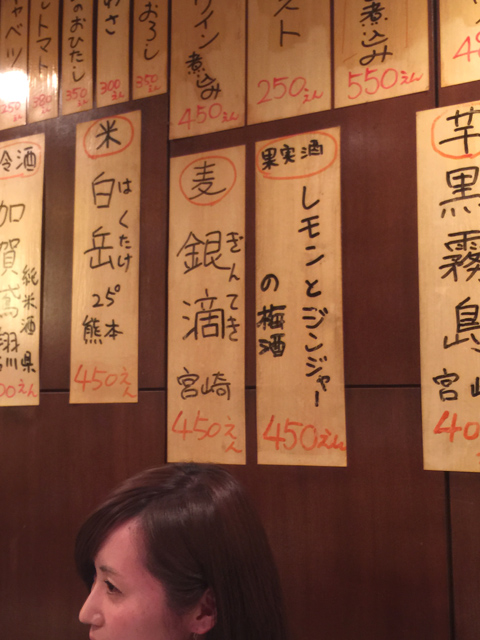 芋
黒霧島
宮崎
果実酒
レモンとジンジャー
の梅酒
450えん
麦
銀滴
ぎんてき
宮崎
450えん
米
白岳
はくたけ
25°
熊本
450えん
冷酒
加賀鳶
純米酒
煮込み
550えん
スト
250えん
ワイン煮込み
450えん
おろし
350えん
300えん
のおひたし
350えん
トマト
キャベツ
250えん